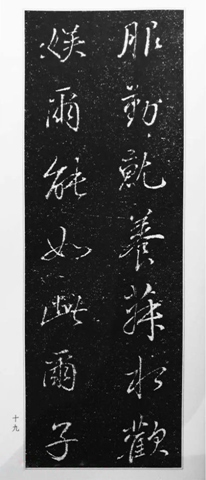 服勤就養蔬水歡
娛爾能如此爾子
十九